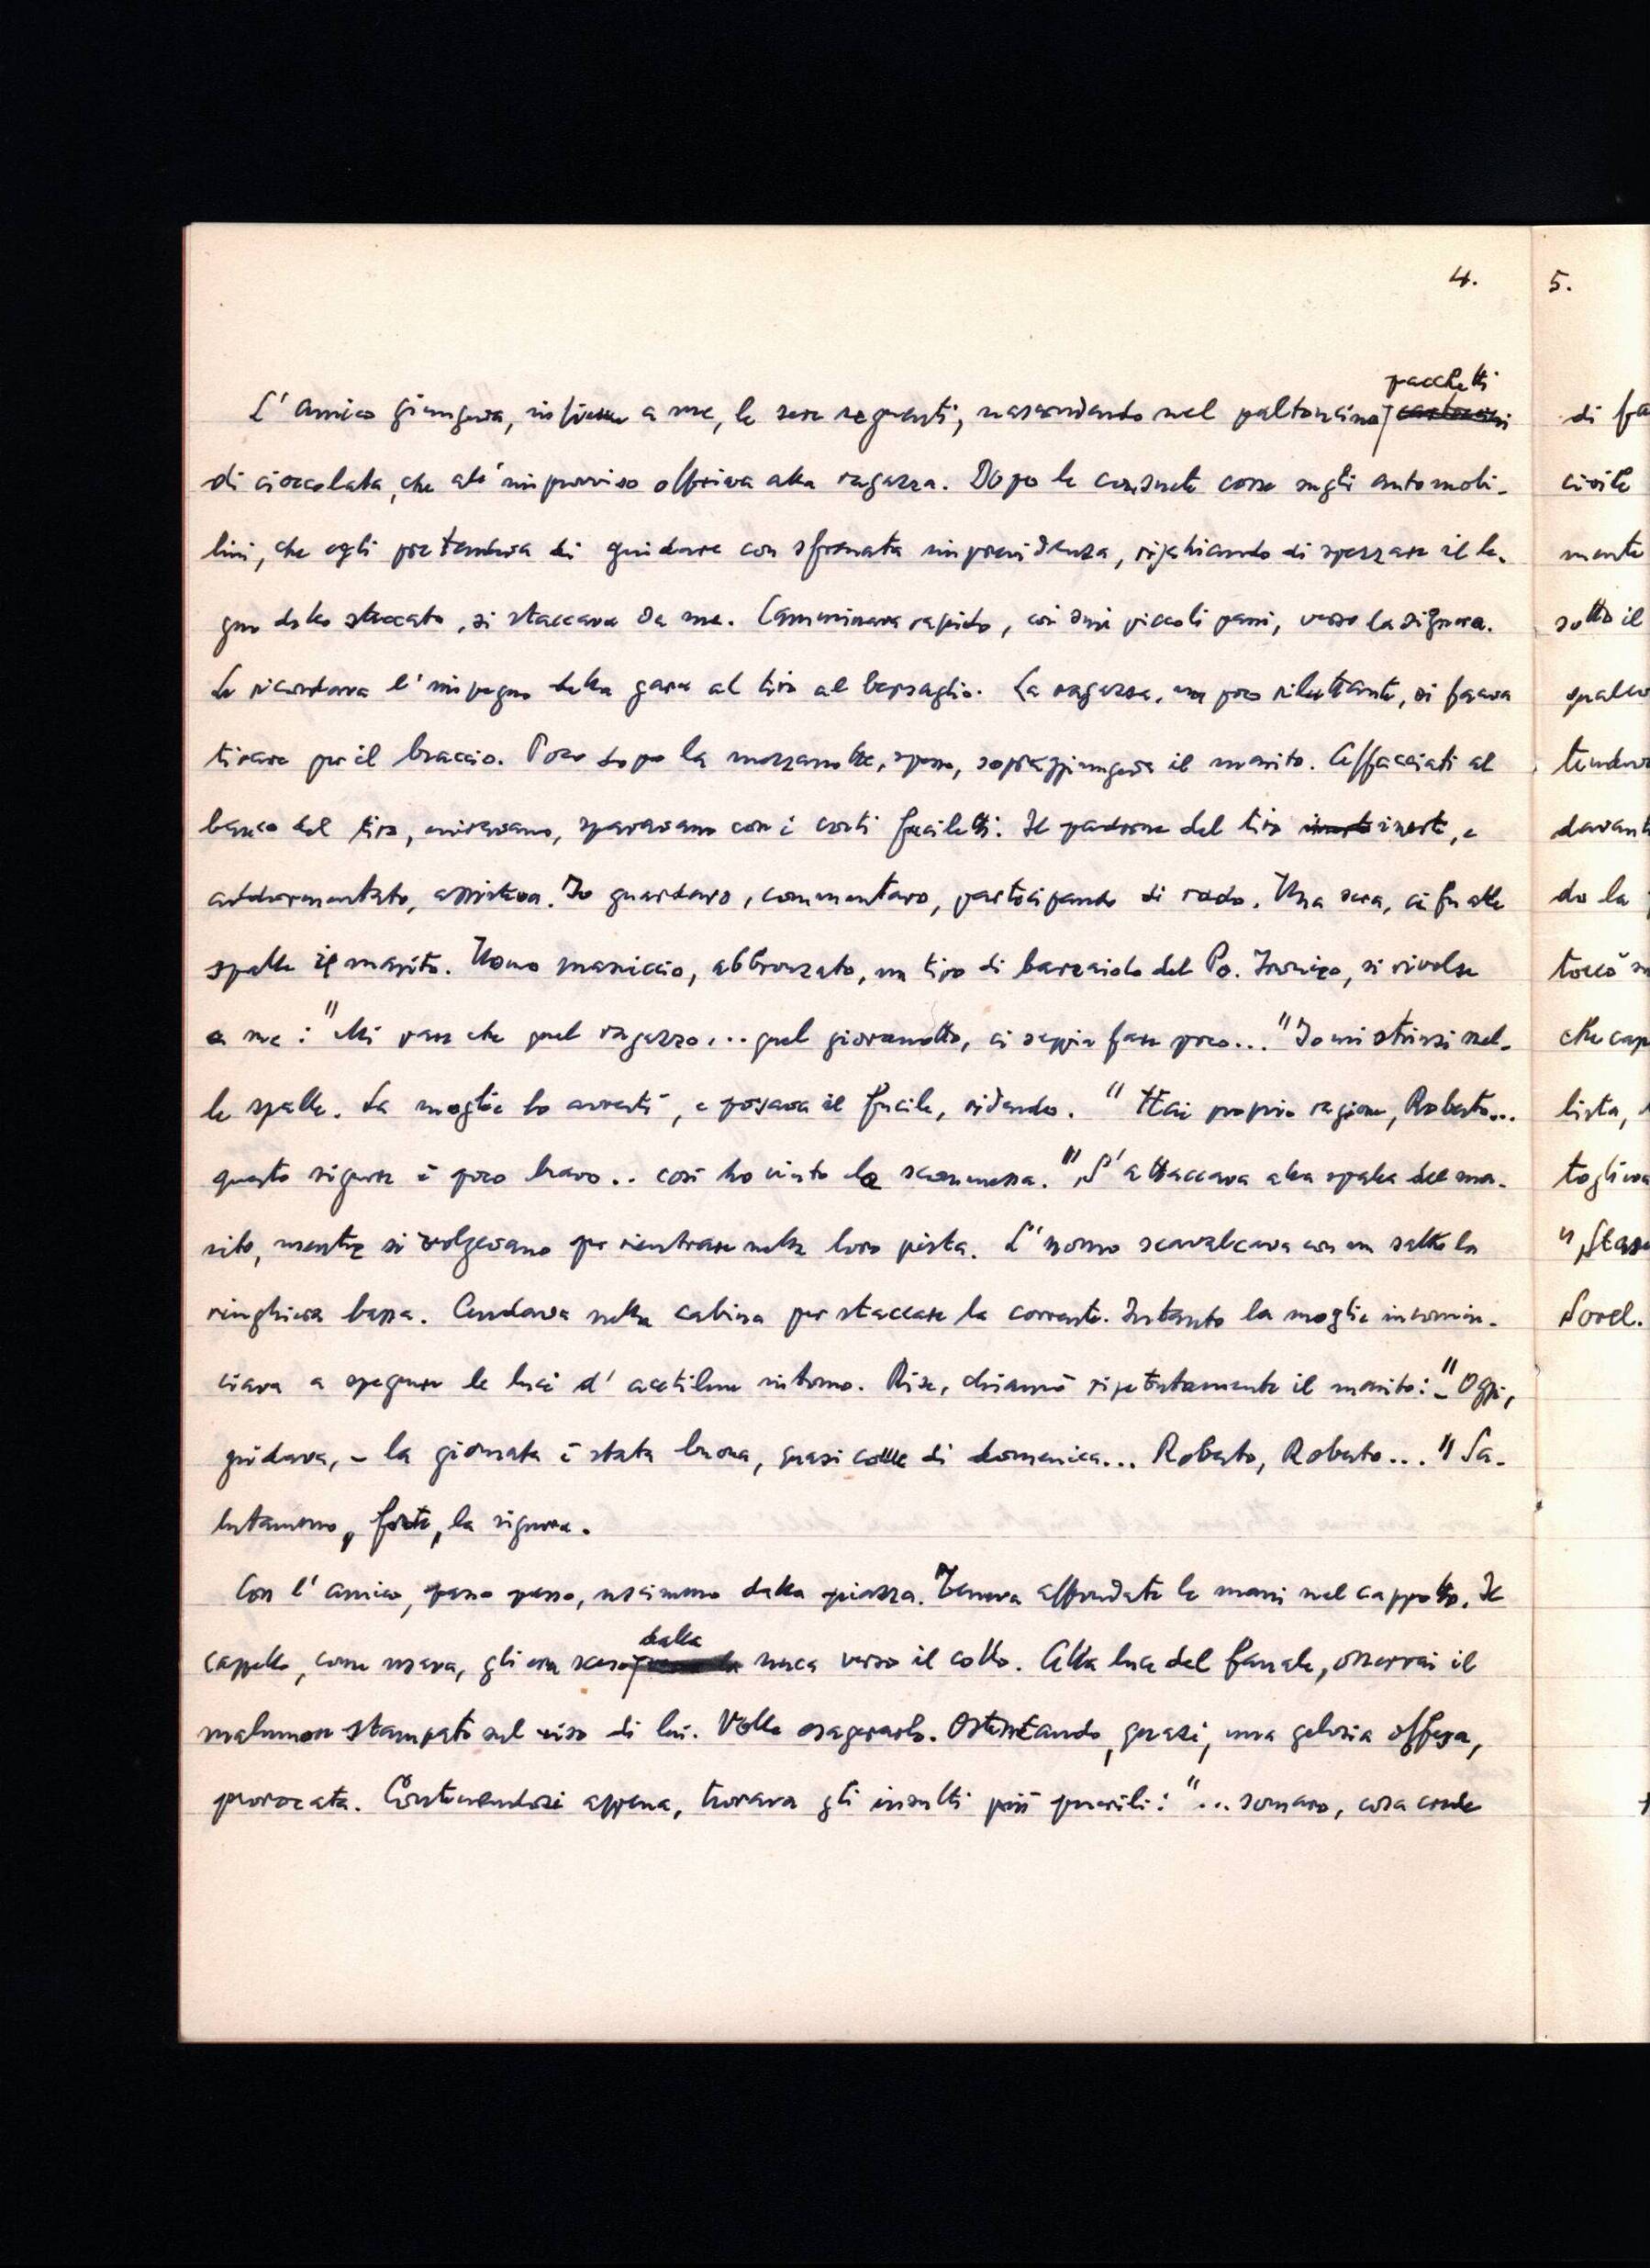 4.
L'amico giungeva, insieme a me, le sere seguenti, nascondendo nel paltoncino pacchetti
di cioccolata, che all'improvviso offriva alla ragazza. Dopo le consuete corse sugli automobi-
lini, che egli pretendeva di guidare con sfrenata imprevidenza, rischiando di spezzare il le-
gno dello steccato, si staccava da me. Camminava rapido, coi suoi piccoli passi, verso la signora.
Le ricordava l'impegno della gara al tiro al bersaglio. La ragazza, un poco riluttante, si faceva
tirare per il braccio. Poco dopo la mezzanotte, spesso, sopraggiungeva il marito. Affacciati al
banco del tiro, miravano, sparavano con i corti fuciletti. Il padrone del tiro inerte, e
addormentato, assisteva. Io guardavo, commentavo, partecipando di rado. Una sera, ci fu alle
spalle il marito. Uomo massiccio, abbronzato, un tipo di barcaiolo del Po. Ironico, si rivolse
a me: "Mi pare che quel ragazzo... quel giovanotto, ci sappia fare poco..." Io mi strinsi nel-
le spalle. La moglie lo avvertì, e posava il fucile, ridendo. "Hai proprio ragione, Roberto...
questo signore è poco bravo.. così ho vinto la scommessa." S'attaccava alla spalla del ma-
rito, mentre si volgevano per rientrare nella loro pista. L'uomo scavalcava con un salto la
ringhiera bassa. Andava nella cabina per staccare la corrente. Intanto la moglie incomin-
ciava a spegnere le luci d'acetilene intorno. Rise, chiamò ripetutamente il marito: "- Oggi,
gridava, - la giornata è stata buona, quasi come di domenica... Roberto, Roberto..." Sa-
lutammo, forte, la signora.
Con l'amico, passo passo, uscimmo dalla piazza. Teneva affondate le mani nel cappotto. Il
cappello, come usava, gli era sceso dalla nuca verso il collo. Alla luce del fanale, osservai il
malumore stampato sul viso di lui. Volle esagerarlo. Ostentando, quasi, una gelosia offesa,
provocata. Contenendosi appena, trovava gli insulti più puerili: "... somaro, cosa crede
5.
di
civile
mente
sotto il
davant
do la
toccò
che cap
lista,
toglieva
Sorel.